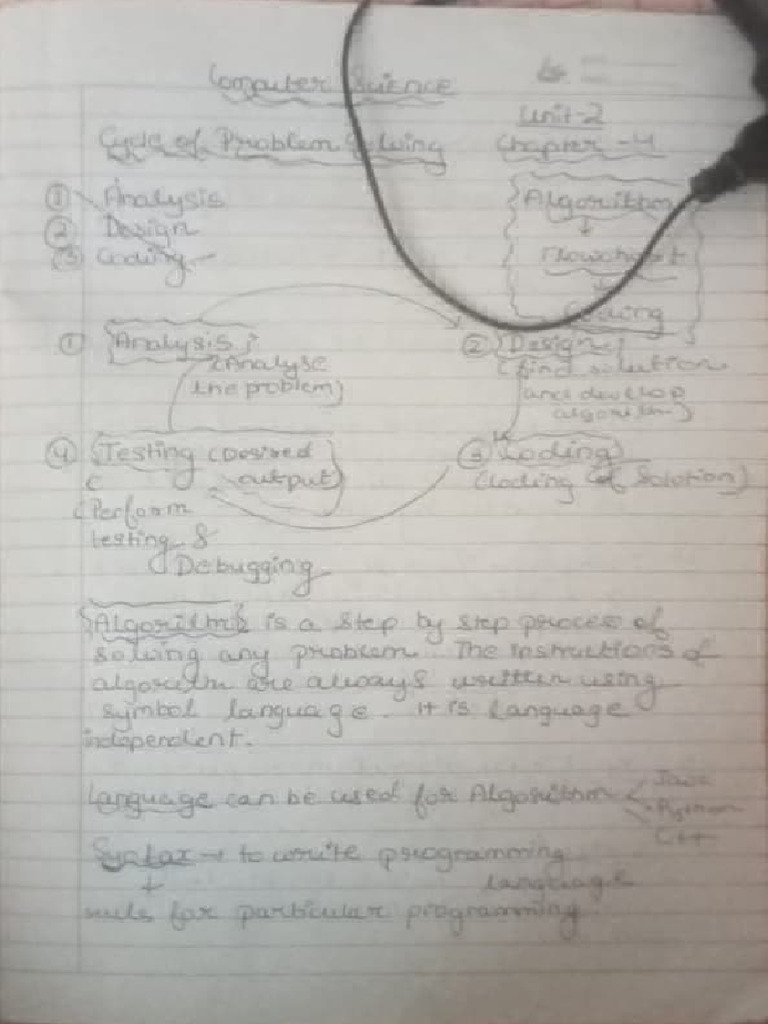 Computer Science
Unit-2
Cycle of Problem Solving
Chapter -4
① Analysis
② Design
③ Coding
Algorithm
↓
Flowchart
↓
Coding
① Analysis :
(Analyse
the problem)
② Design
(find solution
and develop
algorithm)
④ Testing (Desired
output)
(Perform
testing &
Debugging
③ Coding
(Coding of Solution)
Algorithm is a step by step process of
solving any problem. The instructions of
algorithm are always written using
symbol language. It is language
independent.
Language can be used for Algorithm
Java
Python
C++
Syntax → to write programming
language
↓
rules for particular programming